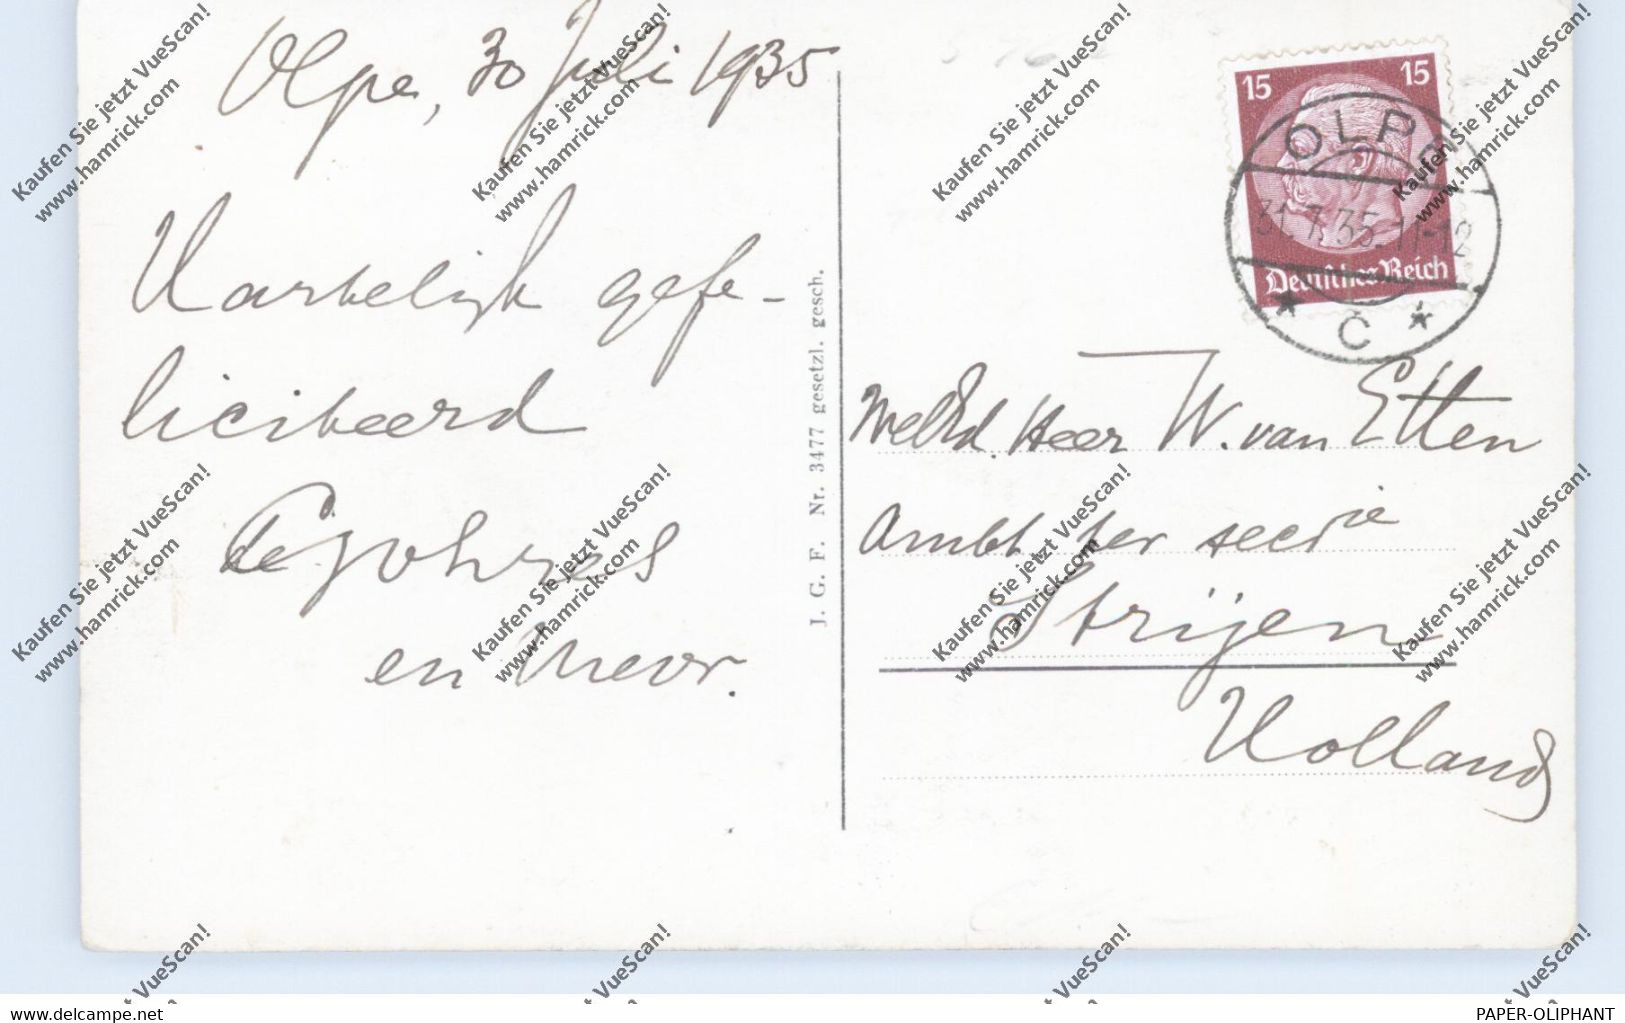 Olpe, 30 Juli 1935
Hartelijk gefe-
liciteerd
en Mevr.
J. G. F. Nr. 3477 gesetzl. gesch.
15 15
Deutsches Reich
OLPE
31.7.35.11-12
* C *
WelEd. Heer W. van Etten
Ambt. ter secrie
Strijen
Holland
Kaufen Sie jetzt VueScan!
www.hamrick.com
www.delcampe.net
PAPER-OLIPHANT